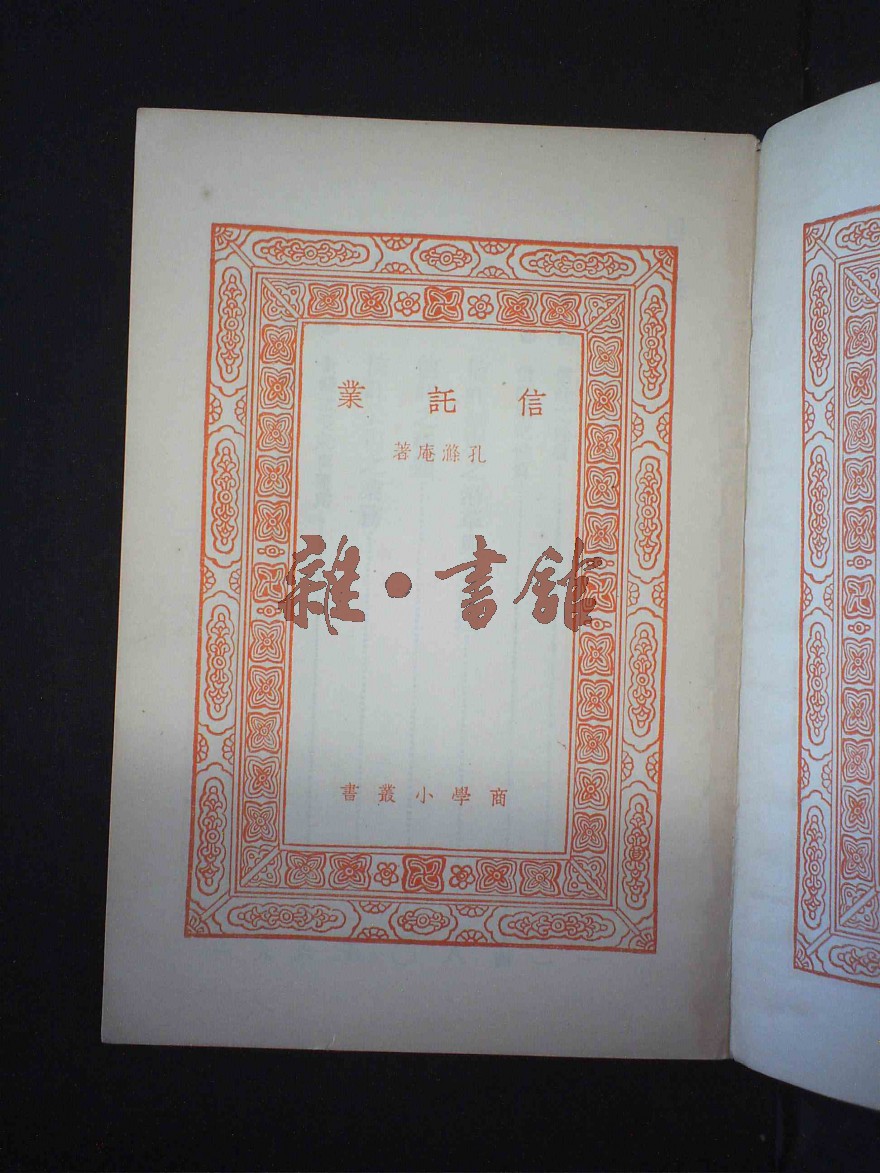 信託業
孔滌庵著
雜·書館
商學小叢書